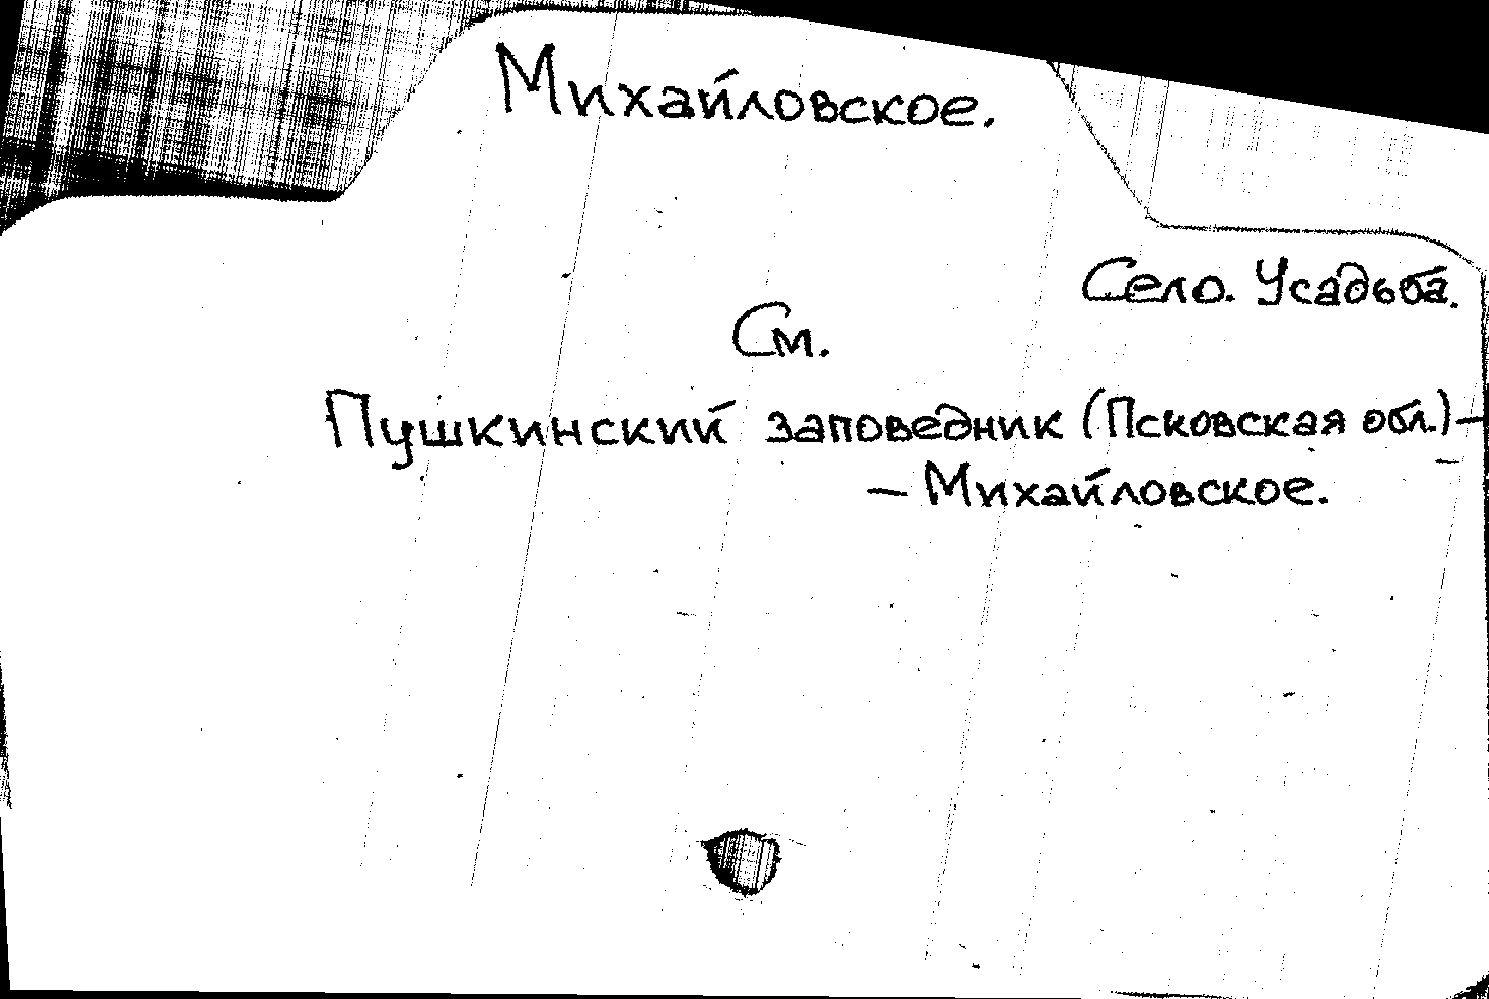 Михайловское.
Село. Усадьба.
См.
Пушкинский заповедник (Псковская обл.) –
– Михайловское.